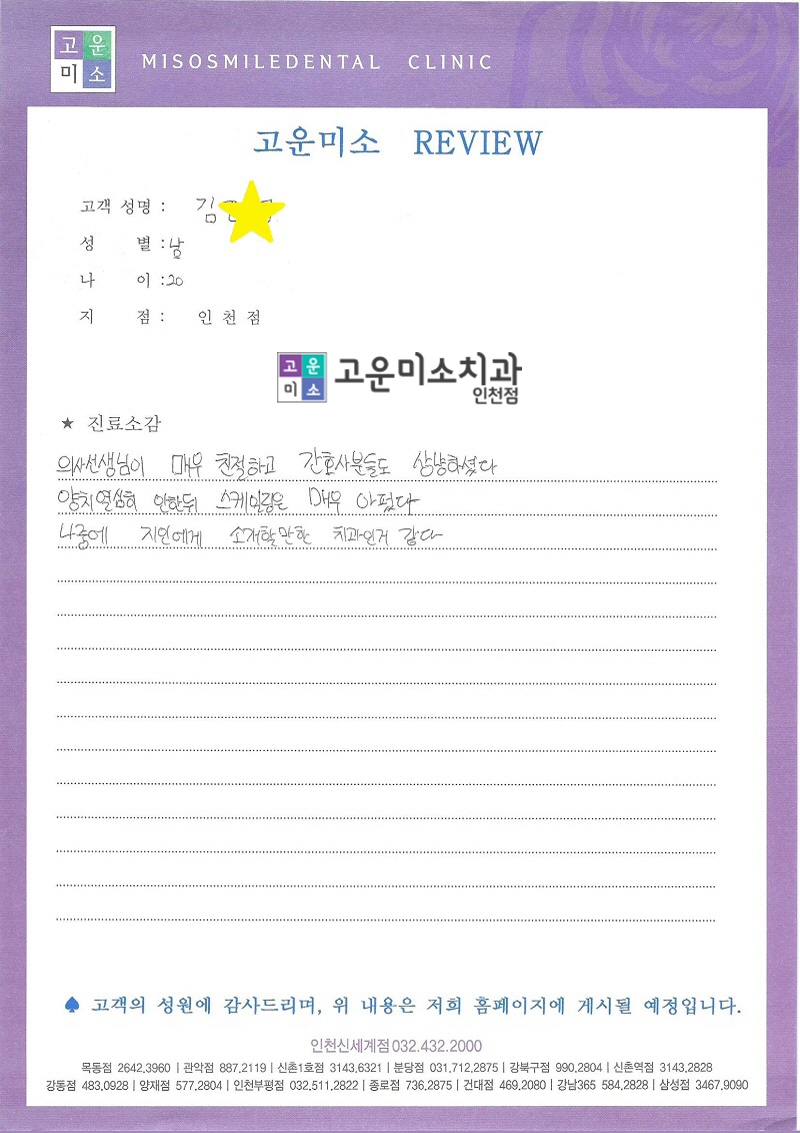 고운
미소
MISOSMILEDENTAL CLINIC
고운미소 REVIEW
고객 성명 : 김
성 별 : 남
나 이 : 20
지 점 : 인 천 점
고운
미소
고운미소치과
인천점
★ 진료소감
의사선생님이 매우 친절하고 간호사분들도 상냥하셨다
양치열심히 안한뒤 스케일링은 매우 아펐다
나중에 지인에게 소개할만한 치과인거 같다
♠ 고객의 성원에 감사드리며, 위 내용은 저희 홈페이지에 게시될 예정입니다.
인천신세계점 032.432.2000
목동점 2642,3960 | 관악점 887,2119 | 신촌1호점 3143,6321 | 분당점 031,712,2875 | 강북구점 990,2804 | 신촌역점 3143,2828
강동점 483,0928 | 양재점 577,2804 | 인천부평점 032,511,2822 | 종로점 736,2875 | 건대점 469,2080 | 강남365 584,2828 | 삼성점 3467,9090